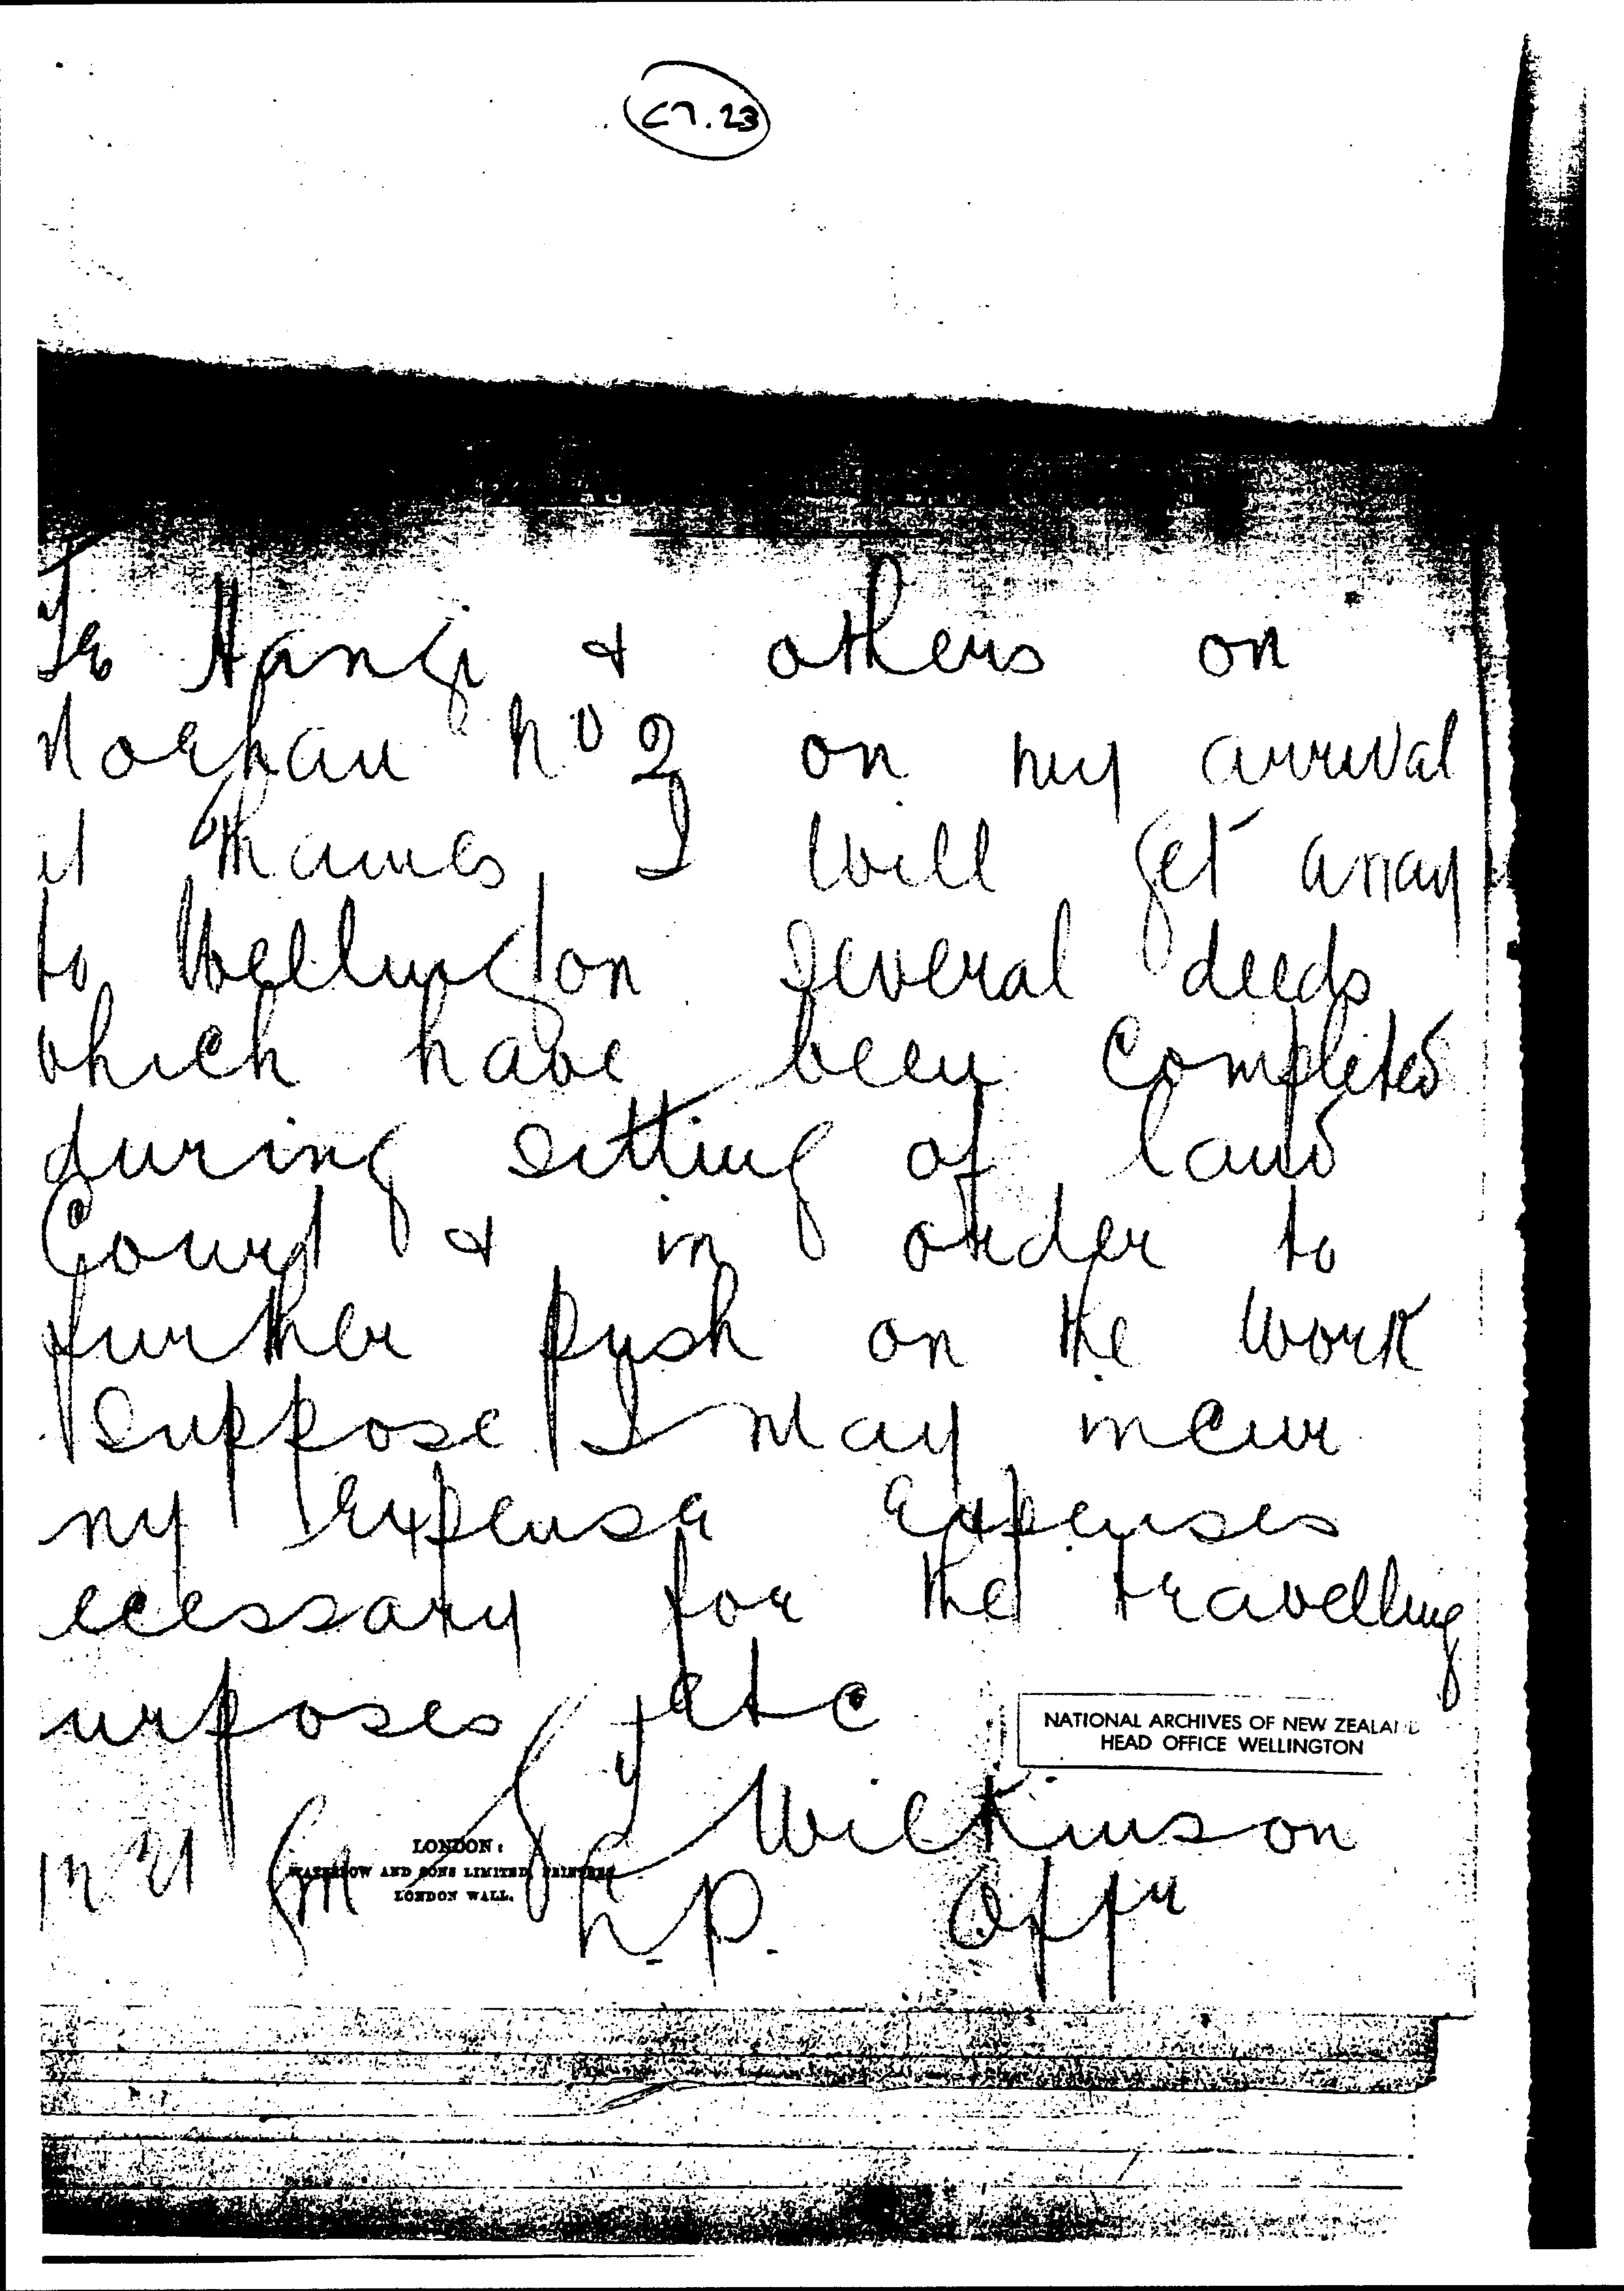 C7.23
Te Hangi & others on
Moehau No 2 on my arrival
at Thames I will get away
to Wellington several deeds
which have been completed
during sitting of land
Court & in order to
further push on the work
suppose I may incur
ny expense expenses
ecessary for the travelling
urposes etc
NATIONAL ARCHIVES OF NEW ZEALAND
HEAD OFFICE WELLINGTON
Wilkinson
LONDON:
WATERLOW AND SONS LIMITED, PRINTERS
LONDON WALL.
L.P. Offr